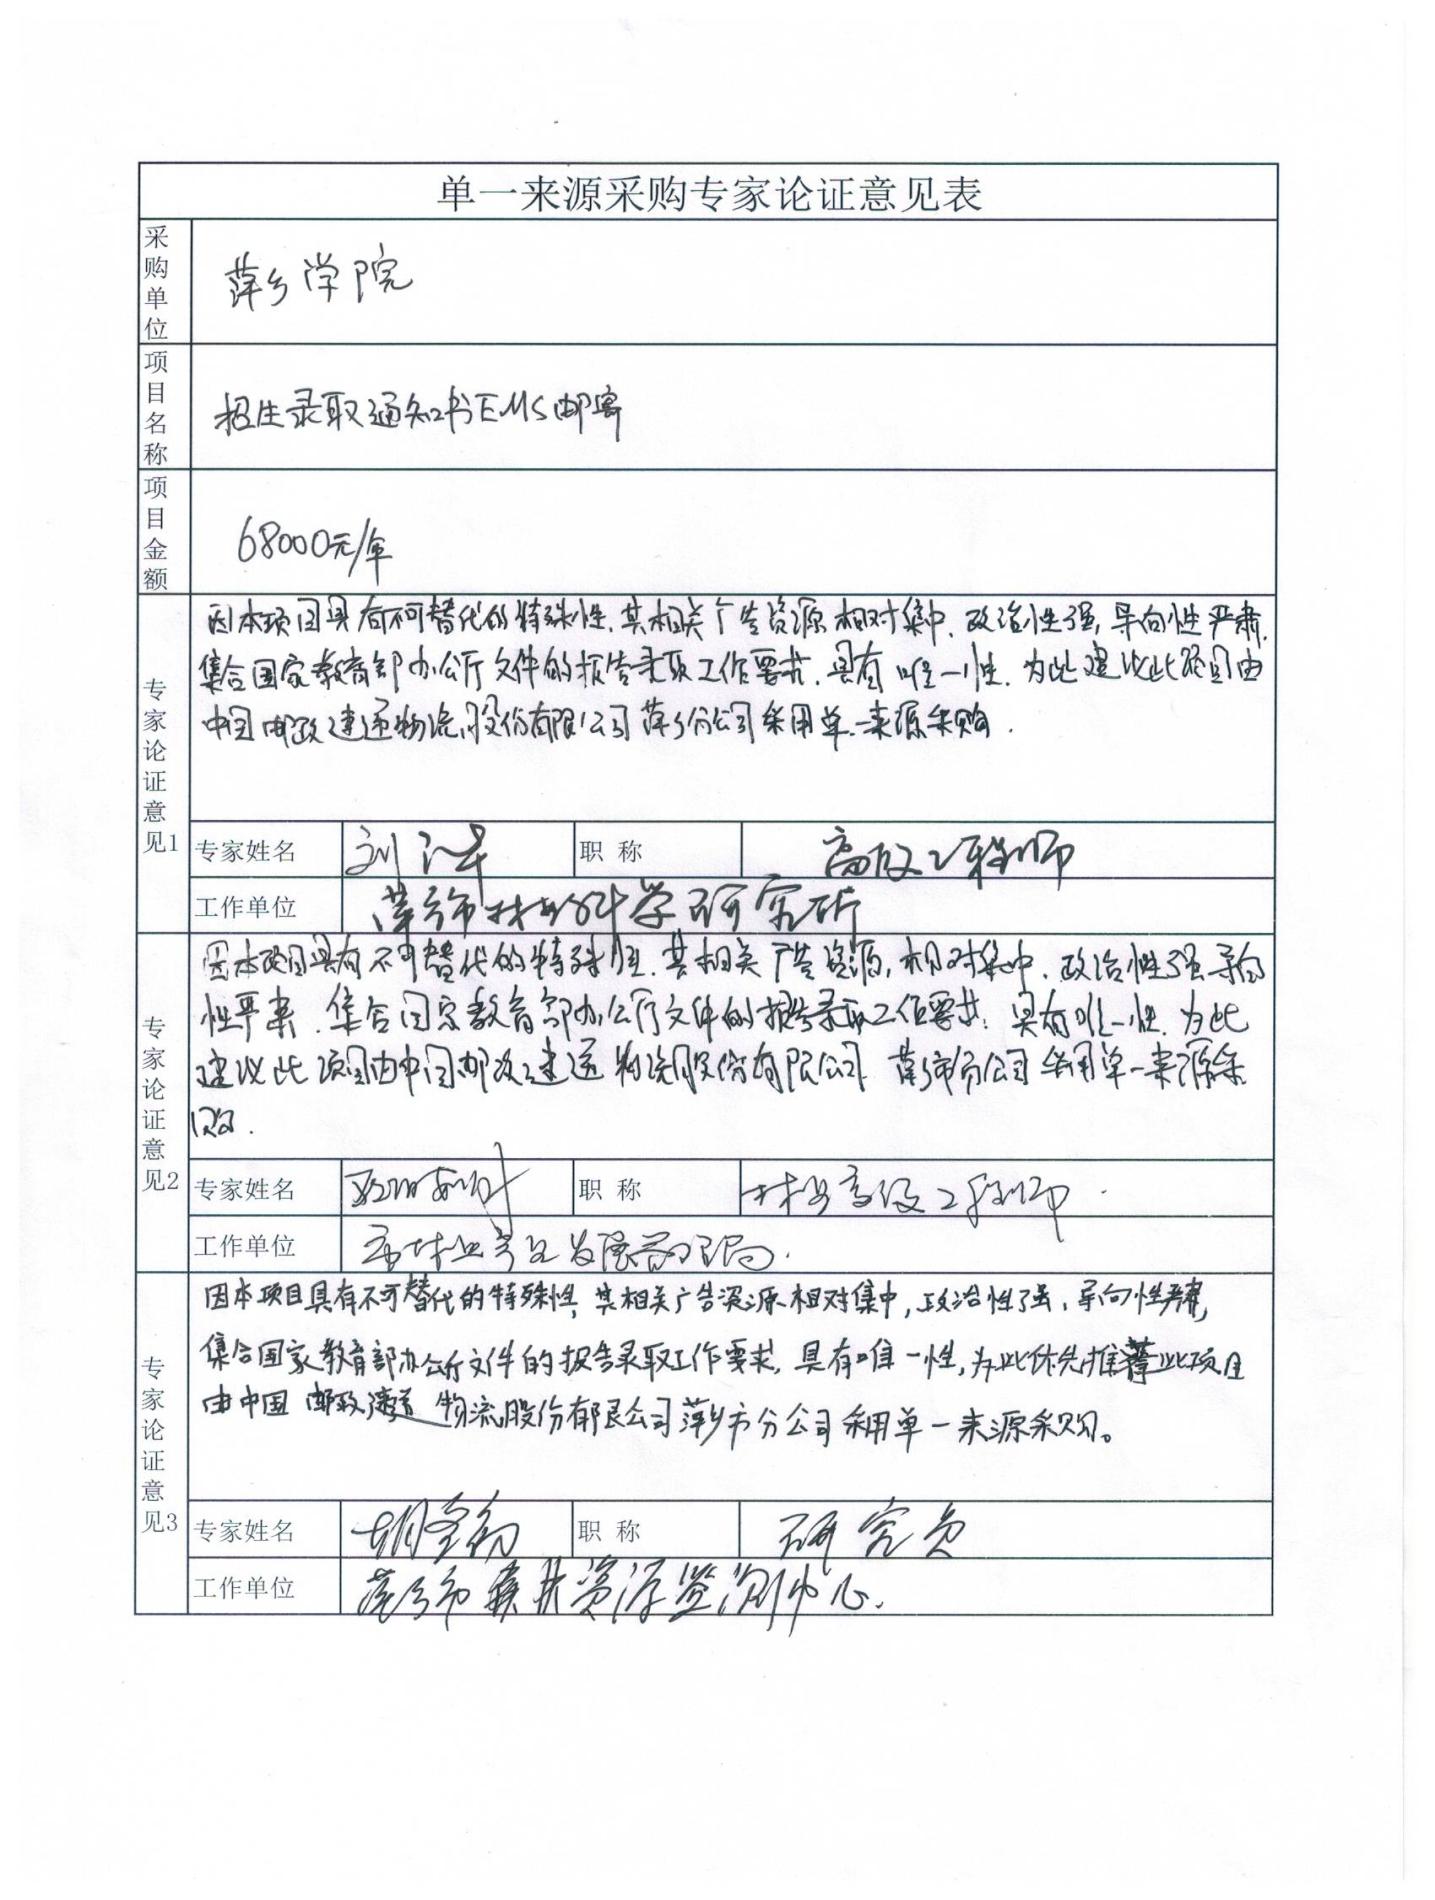 单一来源采购专家论证意见表
采购单位
萍乡学院
项目名称
招生录取通知书EMS邮寄
项目金额
68000元/年
专家论证意见1
因本项目具有不可替代的特殊性,其相关广告资源相对集中,政治性强,导向性严肃,
集合国家教育部办公厅文件的报告录取工作要求,具有唯一性.为此建议此项目由
中国邮政速递物流股份有限公司萍乡分公司采用单一来源采购.
专家姓名 刘 职称 高级工程师
工作单位 萍乡市林业科学研究所
专家论证意见2
因本项目具有不可替代的特殊性.其相关广告资源,相对集中.政治性强导向
性严肃.集合国家教育部办公厅文件的报告录取工作要求.具有唯一性.为此
建议此项目由中国邮政速递物流股份有限公司 萍乡市分公司采用单一来源采
购.
专家姓名 职称 林业高级工程师
工作单位 市林业产业发展管理局.
专家论证意见3
因本项目具有不可替代的特殊性,其相关广告资源相对集中,政治性强,导向性严肃,
集合国家教育部办公厅文件的报告录取工作要求,具有唯一性,为此优先推荐此项目
由中国邮政速递物流股份有限公司萍乡市分公司采用单一来源采购。
专家姓名 胡 职称 研究员
工作单位 萍乡市 资源监测中心.